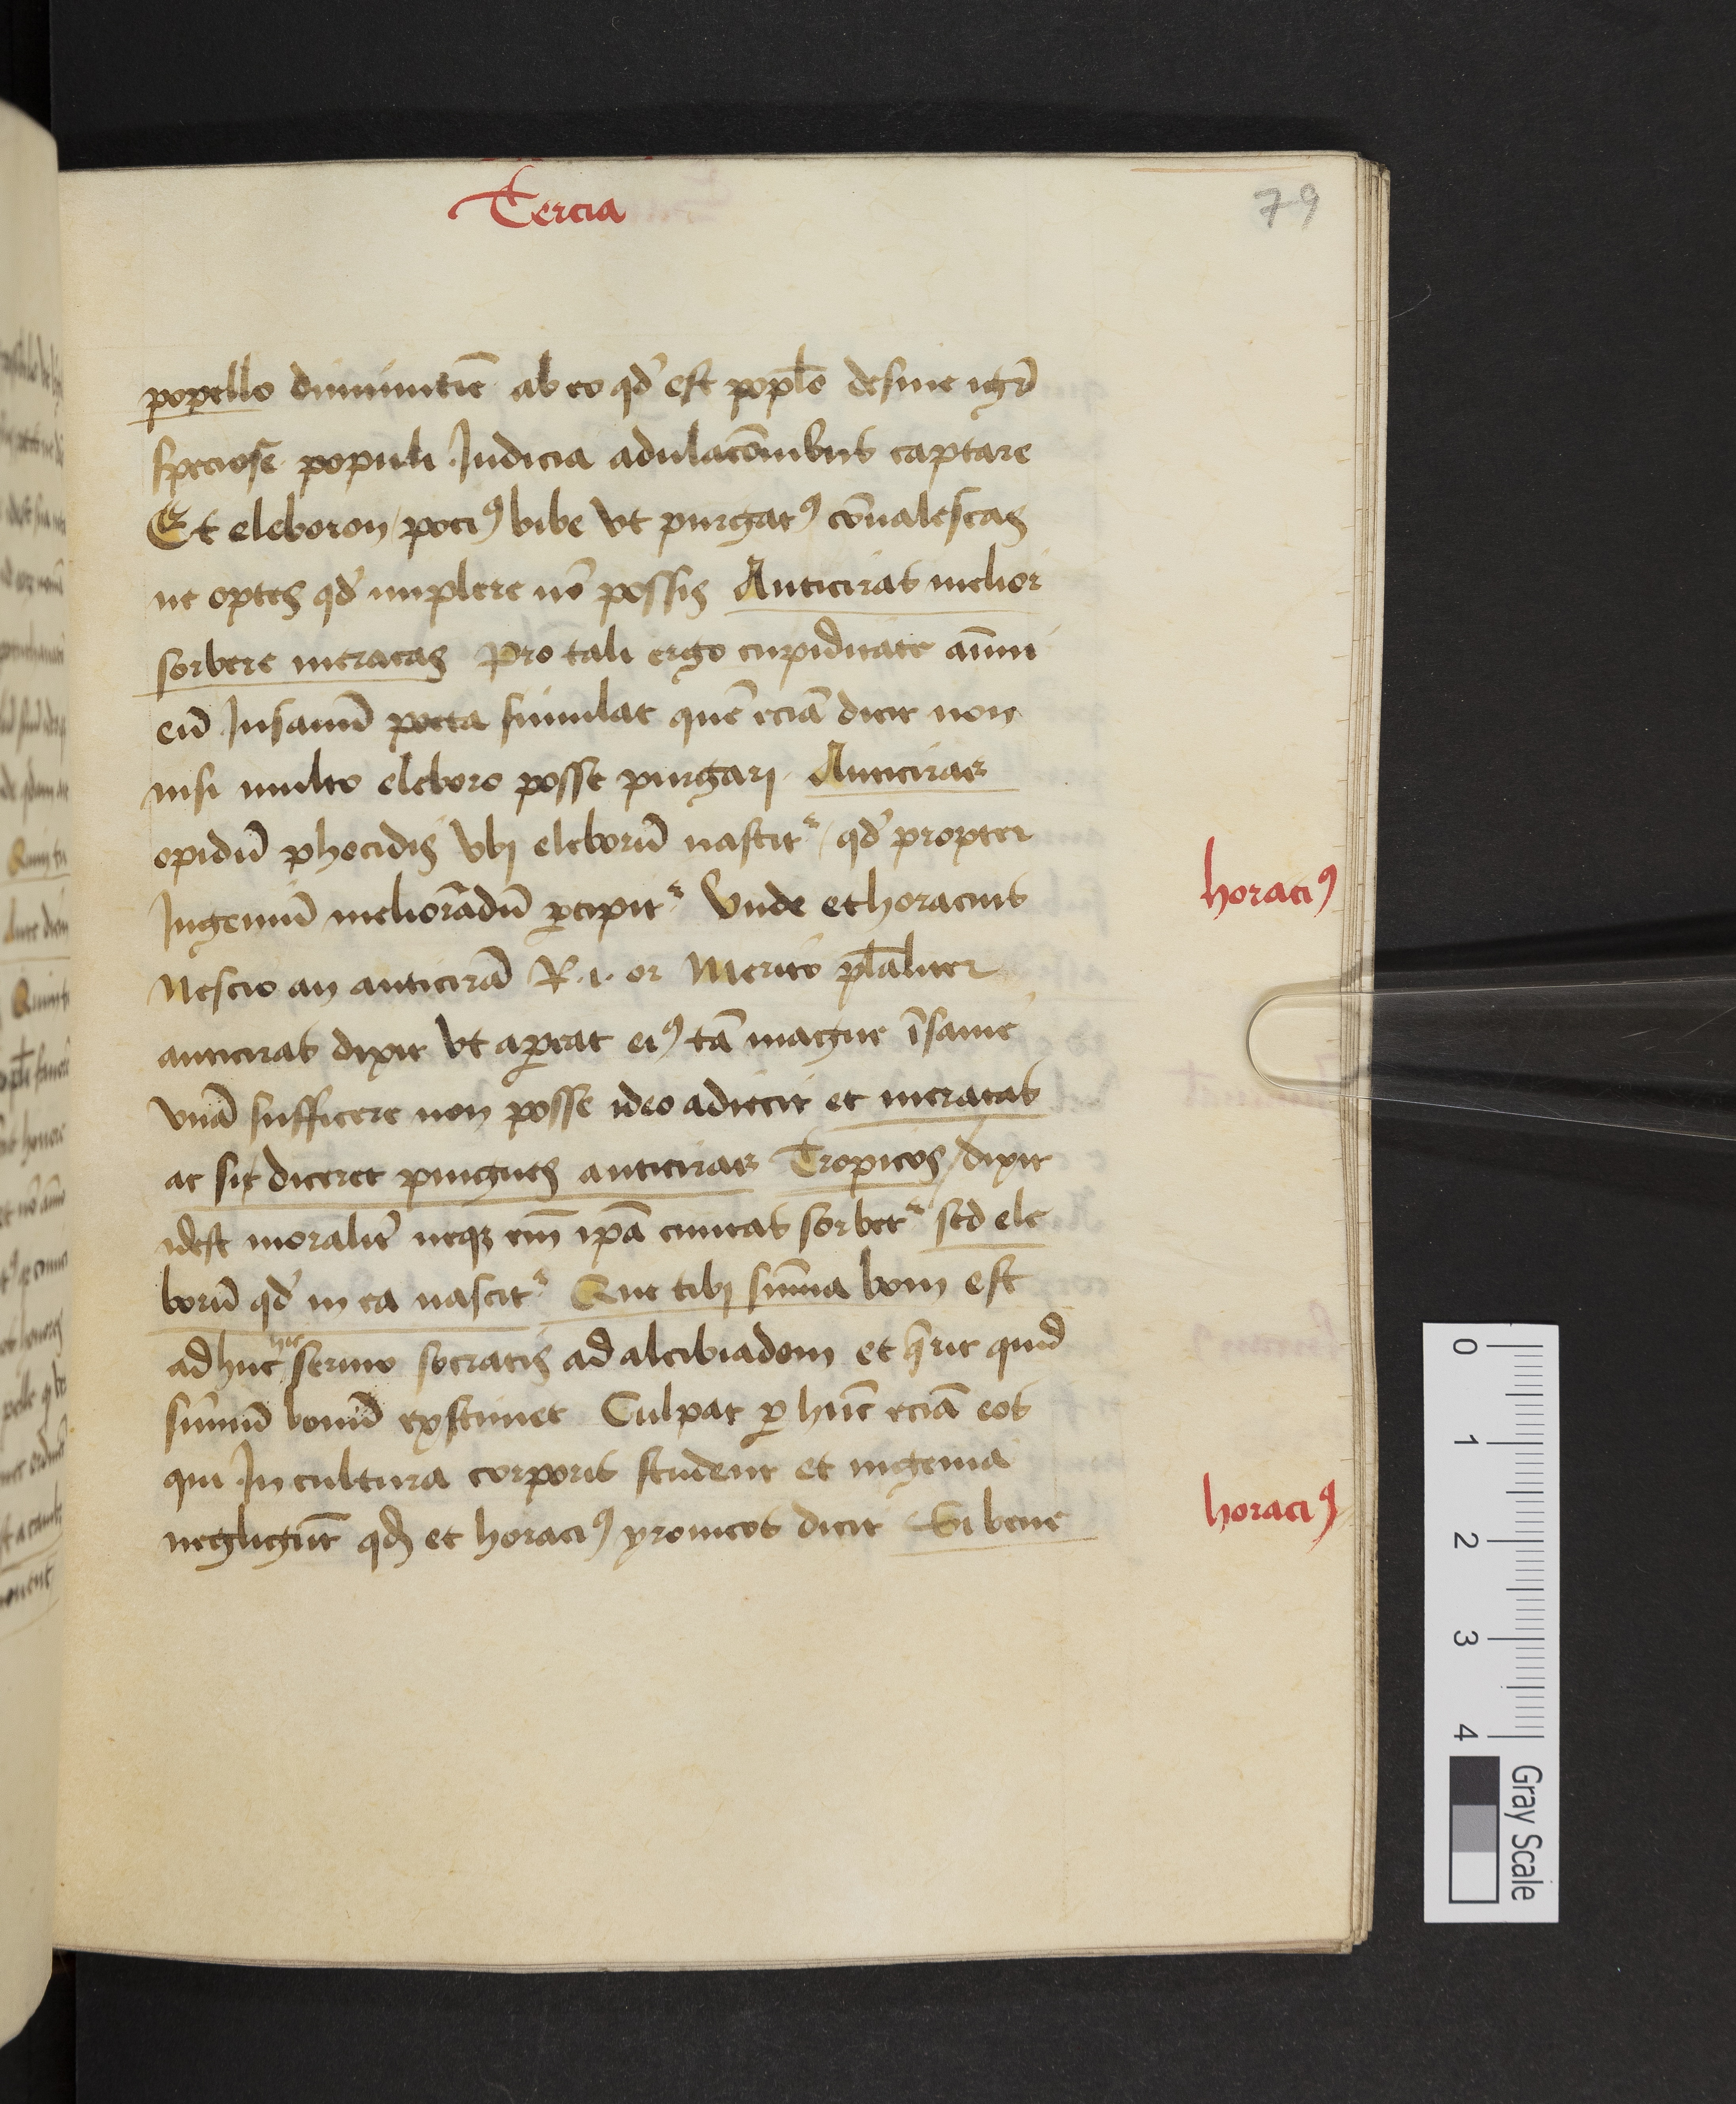 Tercia
79
popello diminutiē ab eo qd' est popło desine igr̄
speciose populi Judicia adulacōnibus captare
Et eleboron / poci⁹ bibe vt purgat⁹ cōualescas
ne optes qd' implere nō possis Anticiras melior
sorbere meracas Pro tali ergo cupiditate aīmi
eū Insanū poeta simulat quē eciā dicit non
nisi multo eleboro posse purgari Anticirae
opidū phocidis vbi eleborū nascit' / qd' propter
Ingeniū meliorādū ꝑcipit' Unde et horacius
Nescio an anticirā R. i. or Merito pl̄aliter
anticiras dixit vt aꝑeat ei⁹ tā magne īsanie
vnā sufficere non posse ideo adiecit et meracas
ac sic diceret pingues anticirae Tropicos / dixit
idest moralit' neqꝫ em̄ ipā ciuitas sorbet' sed ele
borū qd' in ea nascit' Que tibi sūma boni est
adhuc hic sermo socratis ad alcibiadem et q̄rit quid
sūmū bonū existimet Culpat ꝑ hūc eciā eos
qui In cultura corporis student et ingenia
negligūt qd et horaci⁹ yronicos dicit Si bene
horaci⁹
horaci⁹
0
1
2
3
4
Gray Scale